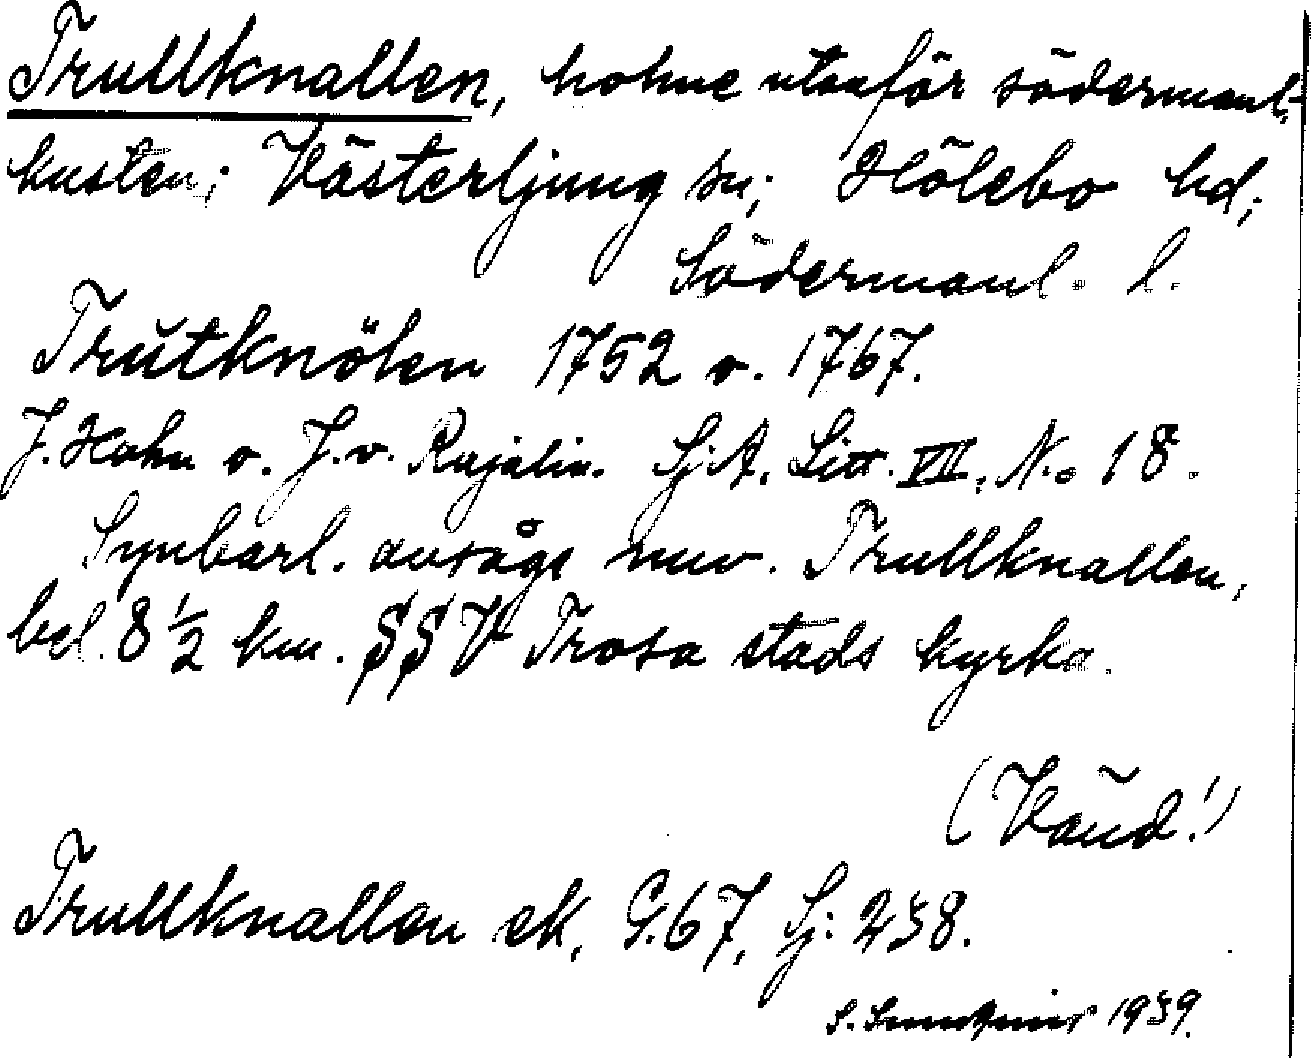 Trullknallen, holme utanför södermanl.-
kusten; Västerljung sn; Hölebo hd;
Södermanl. l.
Trutknölen 1752 o. 1767.
J. Hahn o. J. v. Rajalin. Sj.A. Litt. VIII. No 18.
Synbarl. avsågs nuv. Trullknallen,
bel. 8 1/2 km. SSV Trosa stads kyrka.
(Vänd!)
Trullknallen ek, G.67, Sj: 238.
1939.